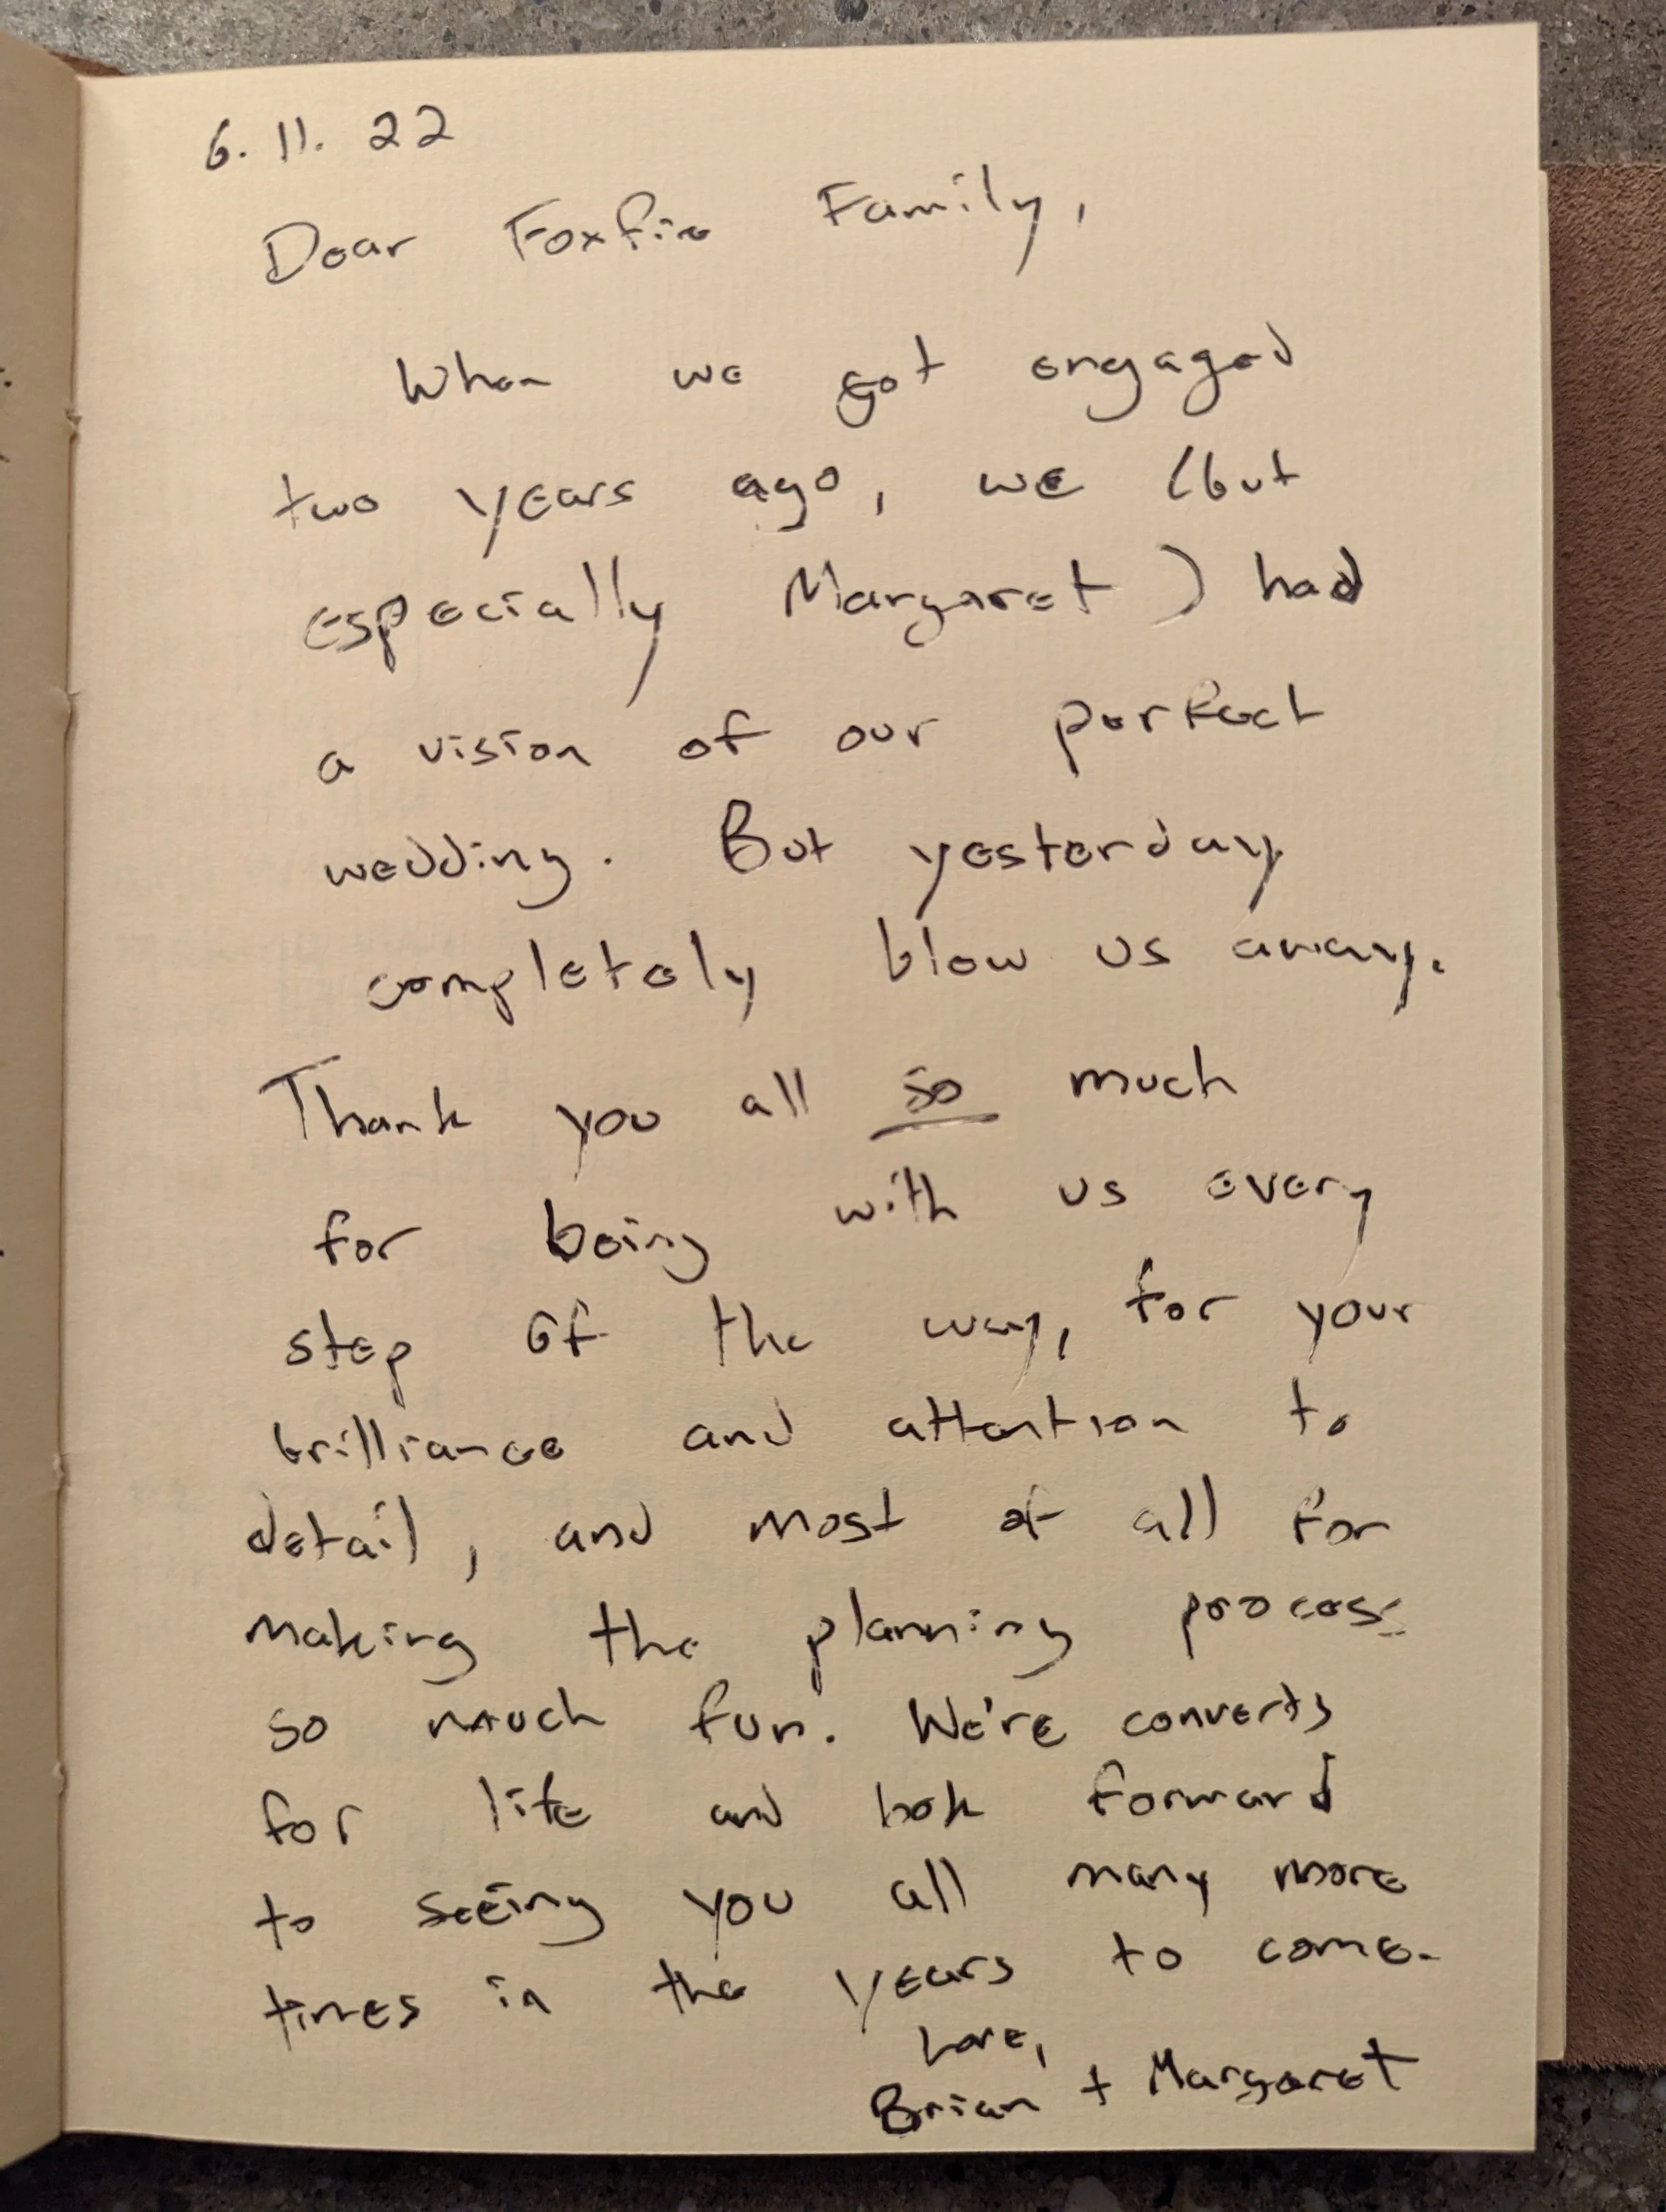 6.11.22
Dear Foxfire Family,
When we got engaged
two years ago, we (but
especially Margaret) had
a vision of our perfect
wedding. But yesterday
completely blew us away.
Thank you all so much
for being with us every
step of the way, for your
brilliance and attention to
detail, and most of all for
making the planning process
so much fun. We're converts
for life and look forward
to seeing you all many more
times in the years to come.
Love,
Brian + Margaret